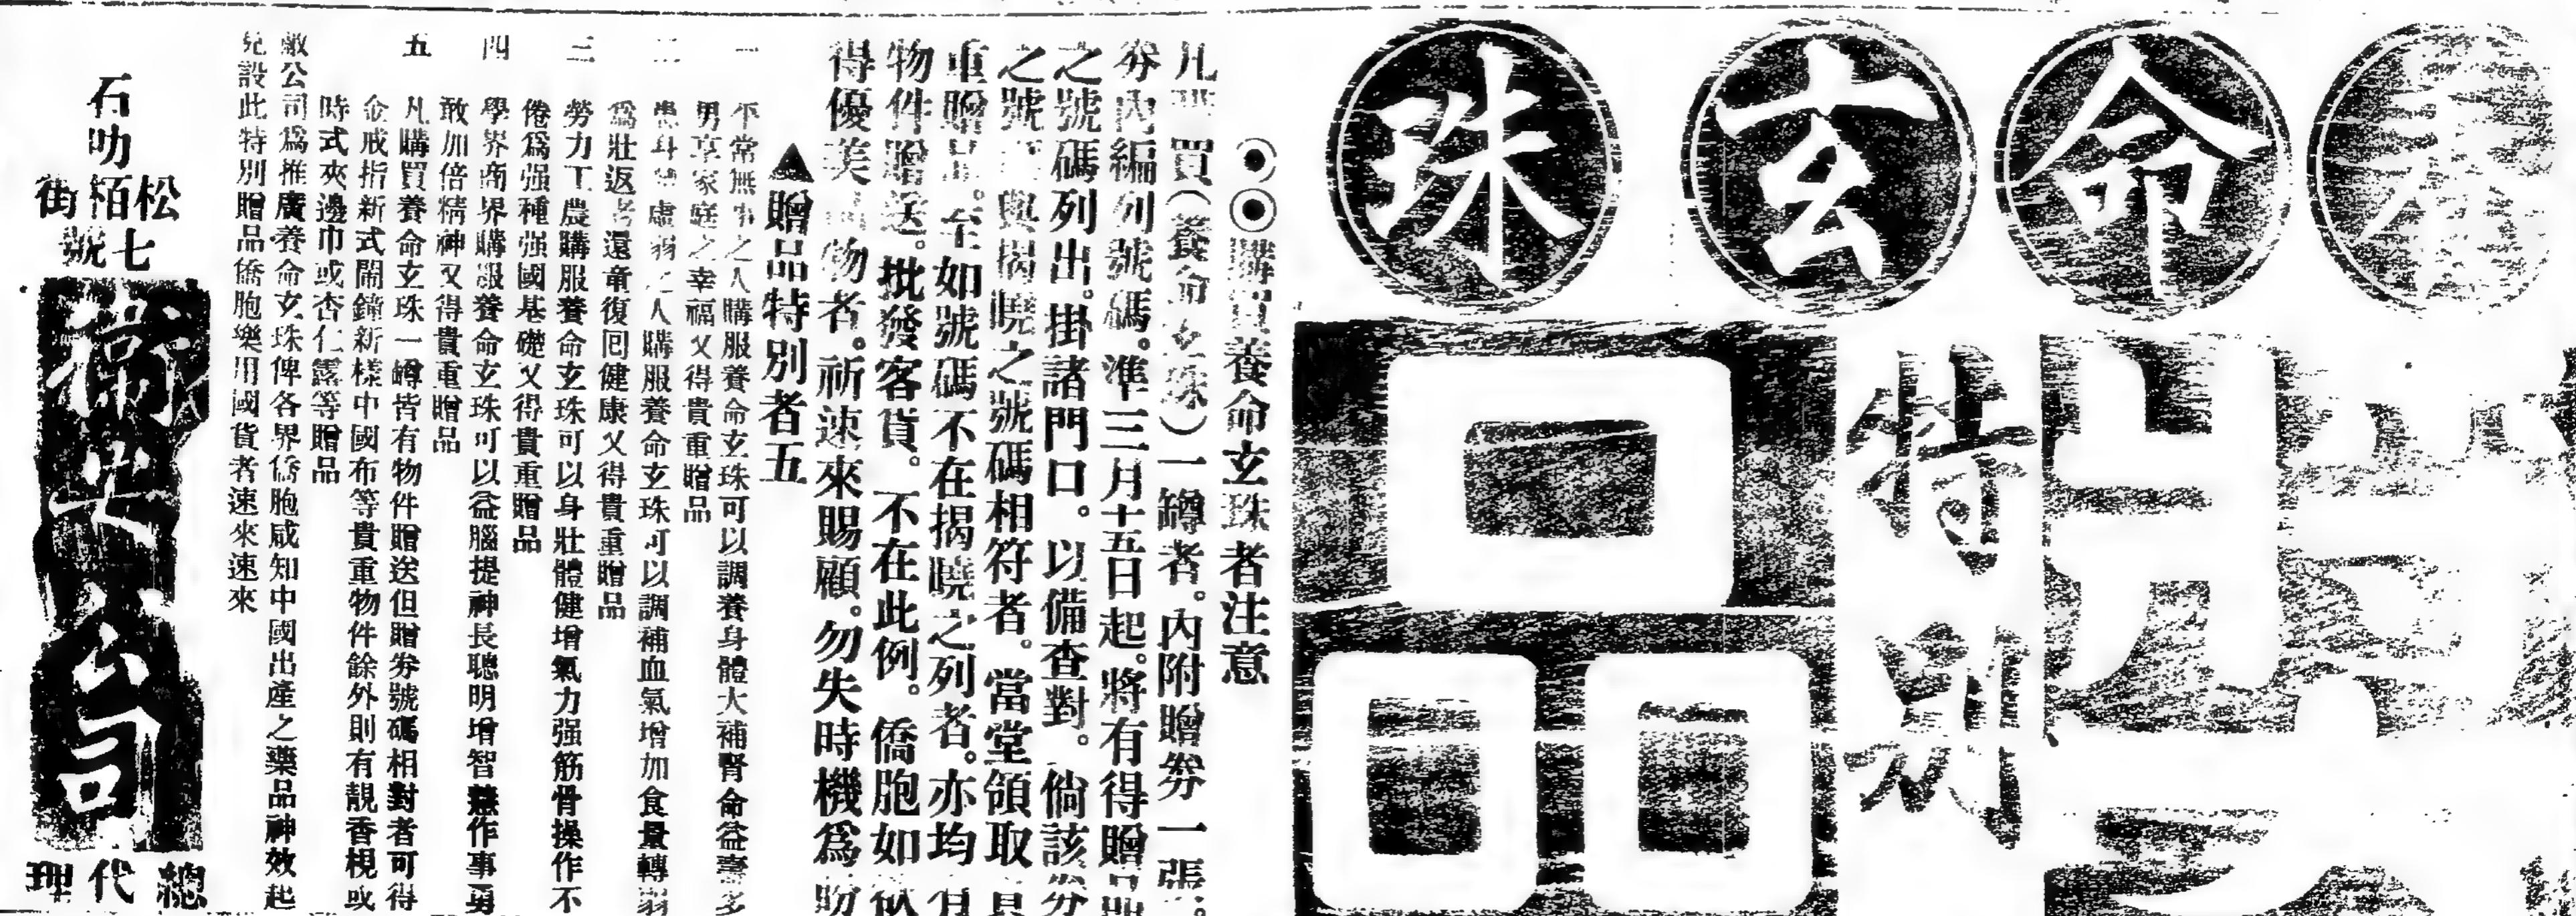 養命玄珠
特別
贈品
◉◉購買養命玄珠者注意
凡購買(養命玄珠)一罇者。內附贈券一張。
券內編列號碼。準三月十五日起。將有得贈品
之號碼列出。掛諸門口。以備查對。倘該券
之號碼與揭曉之號碼相符者。當堂領取貴
重贈品。至如號碼不在揭曉之列者。亦均有
物件贈送。批發客貨。不在此例。僑胞如欲
得優美物者。祈速來賜顧。勿失時機爲盼
▲贈品特別者五
一 平常無事之人購服養命玄珠可以調養身體大補腎命益壽多
男享家庭之幸福又得貴重贈品
二 患身體虛弱之人購服養命玄珠可以調補血氣增加食量轉弱
爲壯返老還童復回健康又得貴重贈品
三 勞力工農購服養命玄珠可以身壯體健增氣力强筋骨操作不
倦爲强種强國基礎又得貴重贈品
四 學界商界購服養命玄珠可以益腦提神長聰明增智慧作事勇
敢加倍精神又得貴重贈品
五 凡購買養命玄珠一罇皆有物件贈送但贈券號碼相對者可得
金戒指新式鬧鐘新樣中國布等貴重物件餘外則有靚香梘或
時式夾邊巾或杏仁露等贈品
敝公司爲推廣養命玄珠俾各界僑胞咸知中國出產之藥品神效起
見設此特別贈品僑胞樂用國貨者速來速來
石叻
松栢街
七號
公司
總代理